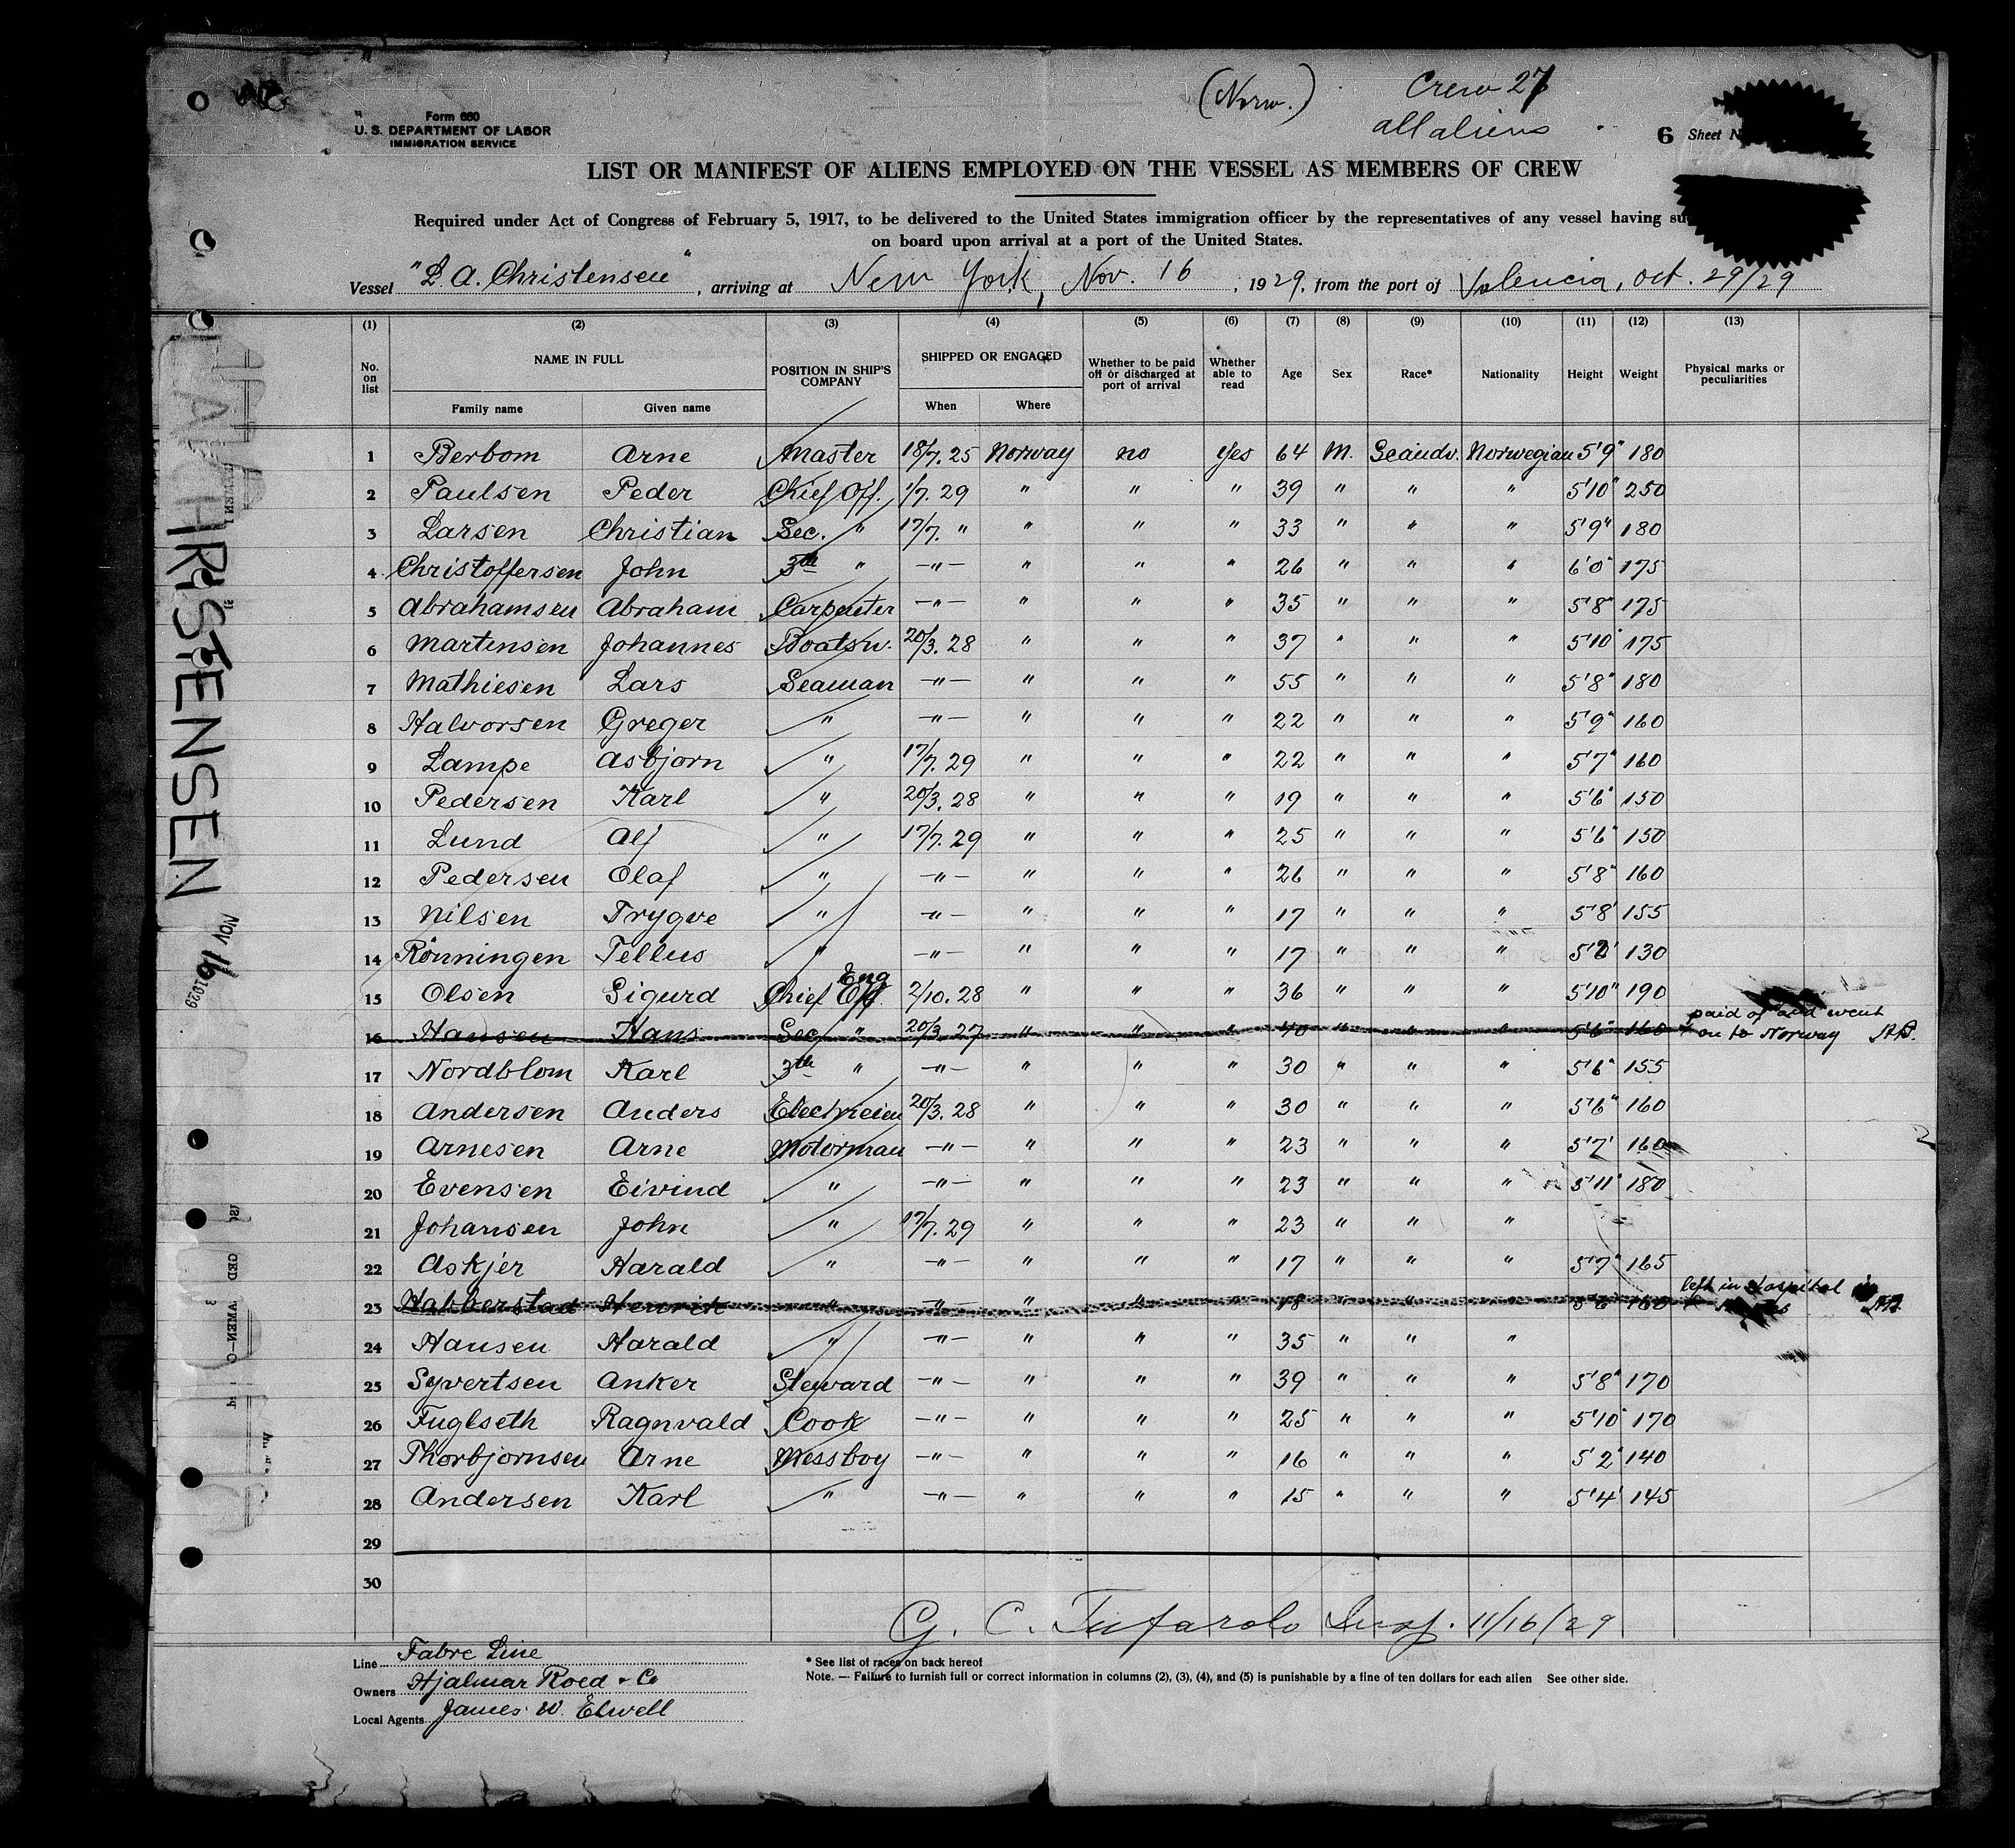 (Norw.) Crew 27
all aliens
Form 680
U. S. DEPARTMENT OF LABOR
IMMIGRATION SERVICE
6 Sheet
LIST OR MANIFEST OF ALIENS EMPLOYED ON THE VESSEL AS MEMBERS OF CREW
Required under Act of Congress of February 5, 1917, to be delivered to the United States immigration officer by the representatives of any vessel having
on board upon arrival at a port of the United States.
Vessel "L. A. Christensen", arriving at New York, Nov. 16, 1929, from the port of Valencia, Oct. 29/29
(1) (2) (3) (4) (5) (6) (7) (8) (9) (10) (11) (12) (13)
No. on list NAME IN FULL POSITION IN SHIP'S COMPANY SHIPPED OR ENGAGED Whether to be paid off or discharged at port of arrival Whether able to read Age Sex Race* Nationality Height Weight Physical marks or peculiarities
Family name Given name When Where
1 Berbom Arne Master 18/7. 25 Norway no Yes 64 M. Scandv. Norwegian 5'9" 180
2 Paulsen Peder Chief Off. 1/7. 29 " " " 39 " " " 5'10" 250
3 Larsen Christian Sec. " 17/7. " " " " 33 " " " 5'9" 180
4 Christoffersen John 3th " —"— " " " 26 " " " 6'0" 175
5 Abrahamsen Abraham Carpenter —"— " " " 35 " " " 5'8" 175
6 Martensen Johannes Boatsw. 20/3. 28 " " " 37 " " " 5'10" 175
7 Mathiesen Lars Seaman —"— " " " 55 " " " 5'8" 180
8 Halvorsen Greger " —"— " " " 22 " " " 5'9" 160
9 Lampe Asbjorn " 17/7. 29 " " " 22 " " " 5'7" 160
10 Pedersen Karl " 20/3. 28 " " " 19 " " " 5'6" 150
11 Lund Alf " 17/7. 29 " " " 25 " " " 5'6" 150
12 Pedersen Olaf " —"— " " " 26 " " " 5'8" 160
13 Nilsen Trygve " —"— " " " 17 " " " 5'8' 155
14 Rönningen Tellus " —"— " " " 17 " " " 130
15 Olsen Sigurd Chief Eng 2/10. 28 " " " 36 " " " 5'10" 190
16 Hansen Hans Sec " 20/3. 27 " " " 40 " " " 5'6" 160 paid of and went
on to Norway
17 Nordblom Karl 3th " —"— " " " 30 " " " 5'6" 155
18 Andersen Anders Electricien 20/3. 28 " " " 30 " " " 5'6" 160
19 Arnesen Arne Motorman —"— " " " 23 " " " 5'7' 160
20 Evensen Eivind " —"— " " " 23 " " " 5'11" 180
21 Johansen John " 17/7. 29 " " " 23 " " "
22 Askjer Harald " —"— " " " 17 " " " 5'7" 165
23 Habberstad Henrik " —"— " " " 18 " " " 5'6" 160 left in Hospital
24 Hansen Harald " —"— " " " 35 " " "
25 Syvertsen Anker Steward —"— " " " 39 " " " 5'8" 170
26 Fuglseth Ragnvald Cook —"— " " " 25 " " " 5'10" 170
27 Thorbjornsen Arne Messboy —"— " " " 16 " " " 5'2" 140
28 Andersen Karl " —"— " " " 15 " " " 5'4' 145
29
30
G. C. Tufarolo Insp. 11/16/29
Line Fabre Line
Owners Hjalmar Roed & Co
Local Agents James W. Elwell
* See list of races on back hereof
Note. — Failure to furnish full or correct information in columns (2), (3), (4), and (5) is punishable by a fine of ten dollars for each alien See other side.
CHRISTENSEN
NOV 16 1929